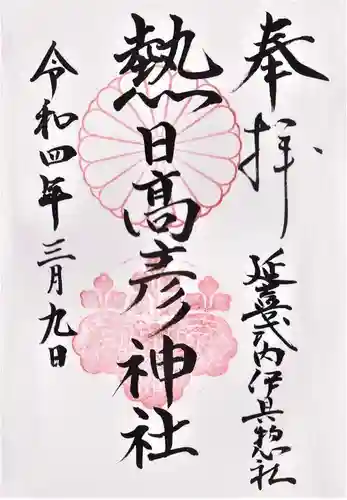 奉拝
延喜式内伊具惣社
熱日高彦神社
令和四年三月九日